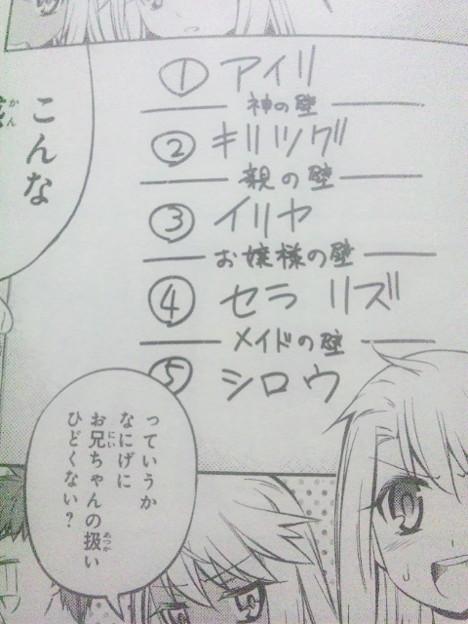 こんな
かん
① アイリ
神の壁
② キリツグ
親の壁
③ イリヤ
お嬢様の壁
④ セラ リズ
メイドの壁
⑤ シロウ
っていうか
なにげに
お兄ちゃんの扱い
にい
あつか
ひどくない?